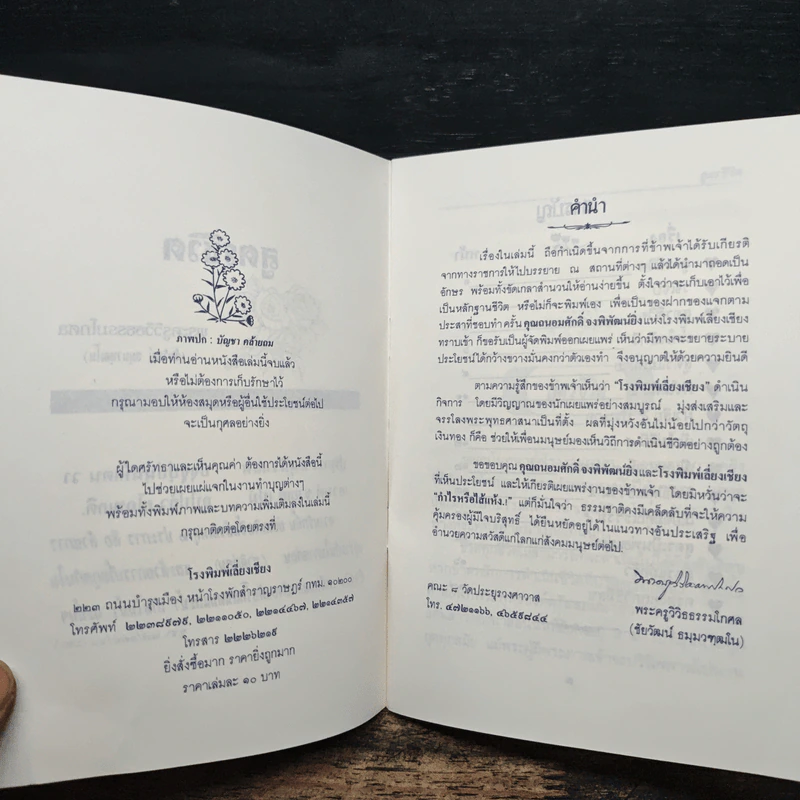 ภาพปก : บัญชา คล้ายถม
เมื่อท่านอ่านหนังสือเล่มนี้จบแล้ว
หรือไม่ต้องการเก็บรักษาไว้
กรุณามอบให้ห้องสมุดหรือผู้อื่นใช้ประโยชน์ต่อไป
จะเป็นกุศลอย่างยิ่ง
ผู้ใดศรัทธาและเห็นคุณค่า ต้องการได้หนังสือนี้
ไปช่วยเผยแผ่แจกในงานทำบุญต่างๆ
พร้อมทั้งพิมพ์ภาพและบทความเพิ่มเติมลงในเล่มนี้
กรุณาติดต่อโดยตรงที่
โรงพิมพ์เลี่ยงเชียง
๒๒๓ ถนนบำรุงเมือง หน้าโรงพักสำราญราษฎร์ กทม. ๑๐๒๐๐
โทรศัพท์ ๒๒๓๘๙๗๙, ๒๒๑๑๐๕๐, ๒๒๑๔๔๖๗, ๒๒๑๔๓๕๗
โทรสาร ๒๒๒๖๒๑๙
ยิ่งสั่งซื้อมาก ราคายิ่งถูกมาก
ราคาเล่มละ ๑๐ บาท
คำนำ
เรื่องในเล่มนี้ ถือกำเนิดขึ้นจากการที่ข้าพเจ้าได้รับเกียรติ
จากทางราชการให้ไปบรรยาย ณ สถานที่ต่างๆ แล้วได้นำมาถอดเป็น
อักษร พร้อมทั้งขัดเกลาสำนวนให้อ่านง่ายขึ้น ตั้งใจว่าจะเก็บเอาไว้เพื่อ
เป็นหลักฐานชีวิต หรือไม่ก็จะพิมพ์เอง เพื่อเป็นของฝากของแจกตาม
ประสาที่ชอบทำ ครั้น คุณถนอมศักดิ์ จงพิพัฒน์ยิ่ง แห่งโรงพิมพ์เลี่ยงเชียง
ทราบเข้า ก็ขอรับเป็นผู้จัดพิมพ์ออกเผยแผ่ เห็นว่ามีทางจะขยายระบาย
ประโยชน์ได้กว้างขวางมั่นคงกว่าตัวเองทำ จึงอนุญาตให้ด้วยความยินดี
ตามความรู้สึกของข้าพเจ้าเห็นว่า "โรงพิมพ์เลี่ยงเชียง" ดำเนิน
กิจการ โดยมีวิญญาณของนักเผยแพร่อย่างสมบูรณ์ มุ่งส่งเสริมและ
จรรโลงพระพุทธศาสนาเป็นที่ตั้ง ผลที่มุ่งหวังอันไม่น้อยไปกว่าวัตถุ
เงินทอง ก็คือ ช่วยให้เพื่อนมนุษย์มองเห็นวิถีการดำเนินชีวิตอย่างถูกต้อง
ขอขอบคุณ คุณถนอมศักดิ์ จงพิพัฒน์ยิ่ง และ โรงพิมพ์เลี่ยงเชียง
ที่เห็นประโยชน์ และให้เกียรติเผยแพร่งานของข้าพเจ้า โดยมิหวั่นว่าจะ
"กำไรหรือไส้แห้ง.!" แต่ก็มั่นใจว่า ธรรมชาติคงมีเคล็ดลับที่จะให้ความ
คุ้มครองผู้มีใจบริสุทธิ์ ได้ยืนหยัดอยู่ได้ในแนวทางอันประเสริฐ เพื่อ
อำนวยความสวัสดีแก่โลกแก่สังคมมนุษย์ต่อไป.
คณะ ๘ วัดประยุรวงศาวาส
โทร. ๔๗๒๑๑๖๖, ๔๖๕๙๘๔๔
พระครูวิวิธธรรมโกศล
(ชัยวัฒน์ ธมฺมวฑฺฒโน)